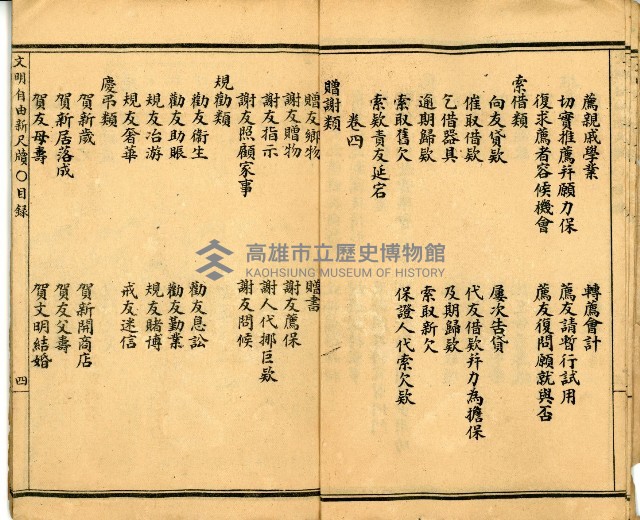 薦親戚學業　轉薦會計
切實推薦幷願力保　薦友請暫行試用
復求薦者容候機會　薦友復問願就與否
索借類
向友貸欵　屢次告貸
催取借欵　代友借欵幷力為擔保
乞借器具　及期歸欵
逾期歸欵　索取新欠
索取舊欠　保證人代索欠欵
索欵責友延宕
卷四
贈謝類
贈友鄉物　贈書
謝友贈物　謝友薦保
謝友指示　謝人代挪巨欵
謝友照顧家事　謝友問候
規勸類
勸友衞生　勸友息訟
勸友助賑　勸友勤業
規友冶游　規友賭博
規友奢華　戒友迷信
慶弔類
賀新歲　賀新開商店
賀新居落成　賀友父壽
賀友母壽　賀文明結婚
文明自由新尺牘〇目録　四
高雄市立歷史博物館
KAOHSIUNG MUSEUM OF HISTORY